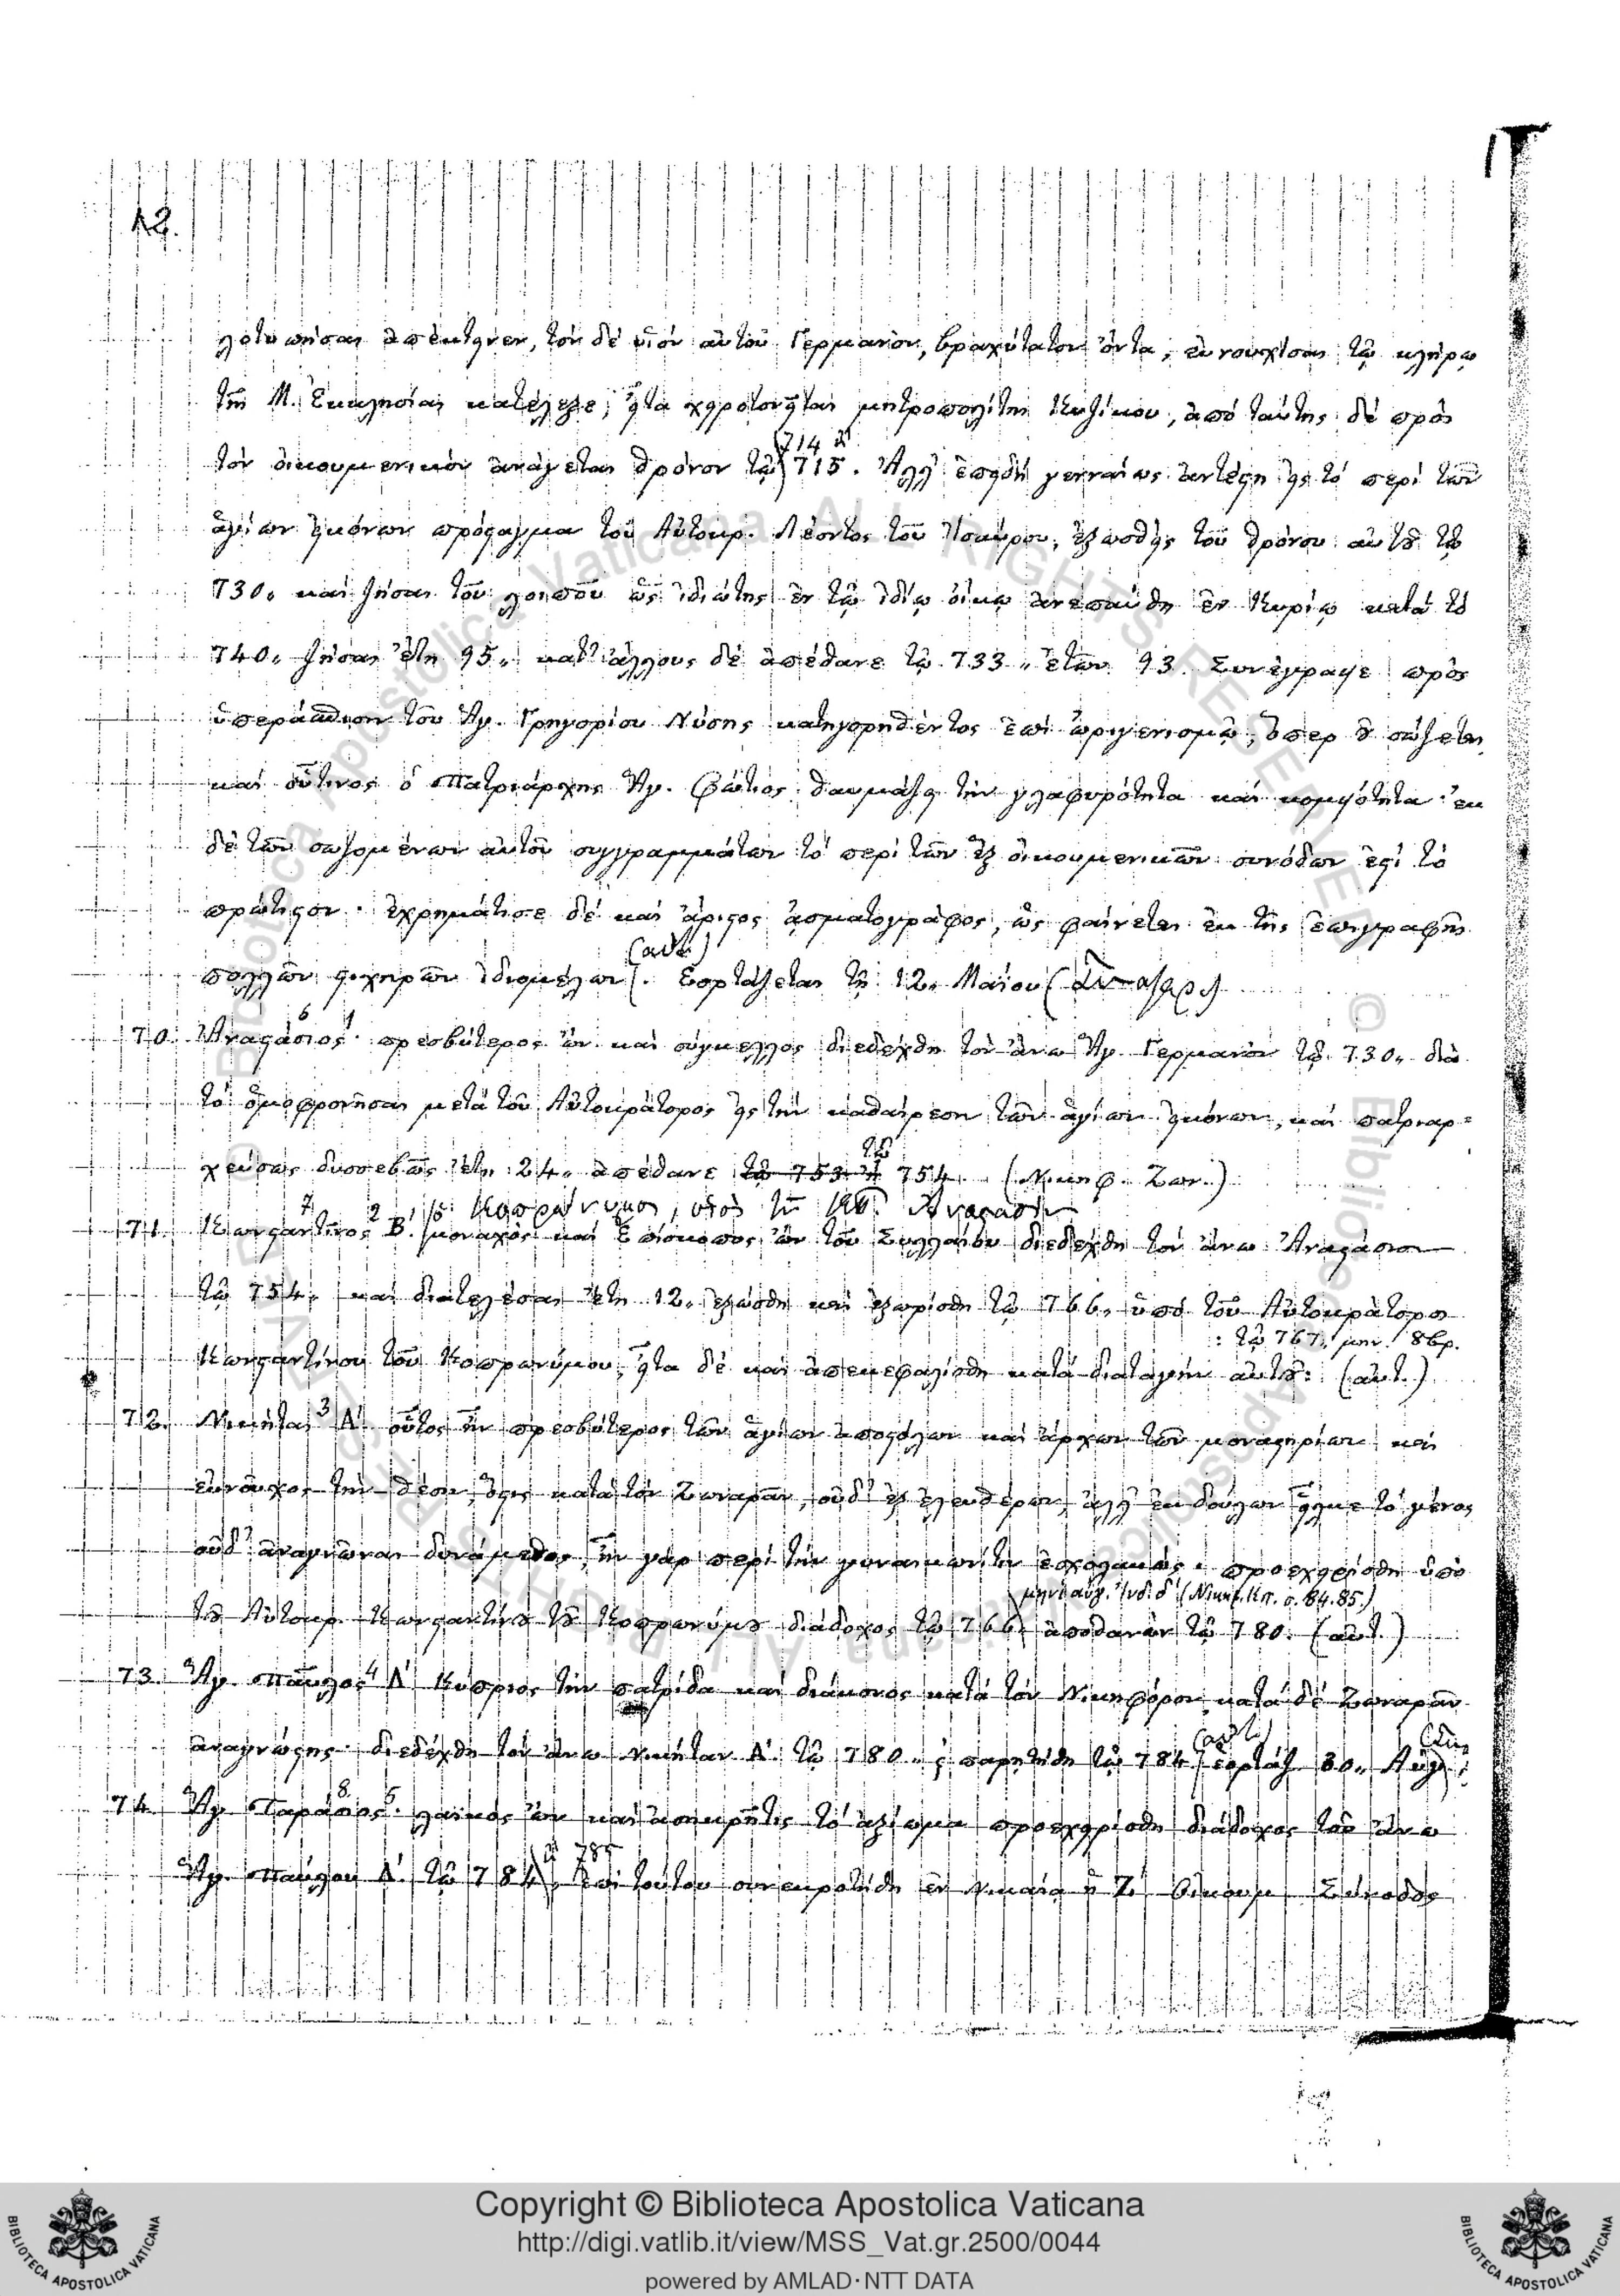 12.
λοτυπήσας ἀπέκτεινεν, τὸν δὲ υἱὸν αὐτοῦ Γερμανὸν, βραχύτατον ὄντα, εὐνουχίσας τῷ κλήρῳ
τῆς Μ. Ἐκκλησίας κατέλεξε, εἶτα χειροτονεῖται μητροπολίτης Κυζίκου, ἀπὸ ταύτης δὲ πρὸς
714 ἢ
τὸν οἰκουμενικὸν ἀνάγεται θρόνον τῷ 715. Ἀλλ' ἐπειδὴ γενναίως ἀντέστη εἰς τὸ περὶ τῶν
ἁγίων εἰκόνων πρόσταγμα τοῦ Αὐτοκρ. Λέοντος τοῦ Ἰσαύρου, ἐξωσθεὶς τοῦ θρόνου αὐτοῦ τῷ
730. καὶ ζήσας τοῦ λοιποῦ ὡς ἰδιώτης ἐν τῷ ἰδίῳ οἴκῳ ἀνεπαύθη ἐν Κυρίῳ κατὰ τὸ
740. ζήσας ἔτη 95. κατ' ἄλλους δὲ ἀπέθανε τῷ 733. ἐτῶν 93. Συνέγραψε πρὸς
ὑπεράσπισιν τοῦ Ἁγ. Γρηγορίου Νύσης κατηγορηθέντος ἐπὶ ὠριγενισμῷ, ὅπερ οὐ σώζεται,
καὶ οὗτινος ὁ Πατριάρχης Ἅγ. Φώτιος θαυμάζει τὴν γλαφυρότητα καὶ κομψότητα· ἐκ
δὲ τῶν σωζομένων αὐτοῦ συγγραμμάτων τὸ περὶ τῶν ἓξ οἰκουμενικῶν συνόδων ἐστὶ τὸ
πρώτιστον· ἐχρημάτισε δὲ καὶ ἄριστος ᾀσματογράφος, ὡς φαίνεται ἐκ τῆς ἐπιγραφῆς
(αὐτ.)
πολλῶν στιχηρῶν ἰδιομέλων. Ἑορτάζεται τῇ 12. Μαΐου
70. Ἀναστάσιος· πρεσβύτερος ὢν καὶ σύγκελλος διεδέχθη τὸν ἄνω Ἅγ. Γερμανὸν τῷ 730. διὰ
τὸ ὁμοφρονῆσαι μετὰ τοῦ Αὐτοκράτορος εἰς τὴν καθαίρεσιν τῶν ἁγίων εἰκόνων, καὶ πατριαρ=
τῷ
χεύσας δυσσεβῶς ἔτη 24. ἀπέθανε τῷ 753 ἢ 754. (Νικηφ. Ζων.)
71. Κωνσταντῖνος Β΄. μοναχὸς καὶ Ἐπίσκοπος ὢν τοῦ Συλλαίου διεδέχθη τὸν ἄνω Ἀναστάσιον
τῷ 754. καὶ διατελέσας ἔτη 12. ἐξώσθη καὶ ἐξωρίσθη τῷ 766. ὑπὸ τοῦ Αὐτοκράτορος
: τῷ 767. μην. 8βρ.
Κωνσταντίνου τοῦ Κοπρωνύμου, εἶτα δὲ καὶ ἀπεκεφαλίσθη κατὰ διαταγὴν αὐτοῦ: (αὐτ.)
72. Νικήτας Α΄. οὗτος ἦν πρεσβύτερος τῶν ἁγίων ἀποστόλων καὶ ἄρχων τῶν μοναστηρίων, καὶ
εὐνοῦχος τὴν θέσιν, ὅστις κατὰ τὸν Ζωναρᾶν, οὐδ' ἐξ ἐλευθέρων, ἀλλ' ἐκ δούλων εἷλκε τὸ γένος
οὐδ' ἀναγνῶναι δυνάμενος, ἦν γὰρ περὶ τὴν γυναικωνῖτιν ἐσχολακώς· προεχειρίσθη ὑπὸ
μηνὶ αὐγ. Ἰνδ. δ΄ (Νικηφ. Κπ. σ. 84.85.)
τοῦ Αὐτοκρ. Κωνσταντίνου τοῦ Κοπρωνύμου διάδοχος τῷ 766. ἀποθανὼν τῷ 780. (αὐτ.)
73. Ἅγ. Παῦλος Δ΄ Κύπριος τὴν πατρίδα καὶ διάκονος κατὰ τὸν Νικηφόρον, κατὰ δὲ Ζωναρᾶν
(αὐτ.)
ἀναγνώστης· διεδέχθη τὸν ἄνω Νικήταν Α΄ τῷ 780. ϛ παρῃτήθη τῷ 784. ἑορτάζ. 30. Αὐγ.
74. Ἅγ. Ταράσιος. λαϊκὸς ὢν καὶ ἀσηκρῆτις τὸ ἀξίωμα προεχειρίσθη διάδοχος τοῦ ἄνω
ἢ 785
Ἁγ. Παύλου Δ΄. τῷ 784. Ἐπὶ τούτου συνεκροτήθη ἐν Νικαίᾳ ἡ Ζ΄ Οἰκουμ. Σύνοδος
Copyright © Biblioteca Apostolica Vaticana
http://digi.vatlib.it/view/MSS_Vat.gr.2500/0044
powered by AMLAD·NTT DATA
BIBLIOTECA APOSTOLICA VATICANA
BIBLIOTECA APOSTOLICA VATICANA